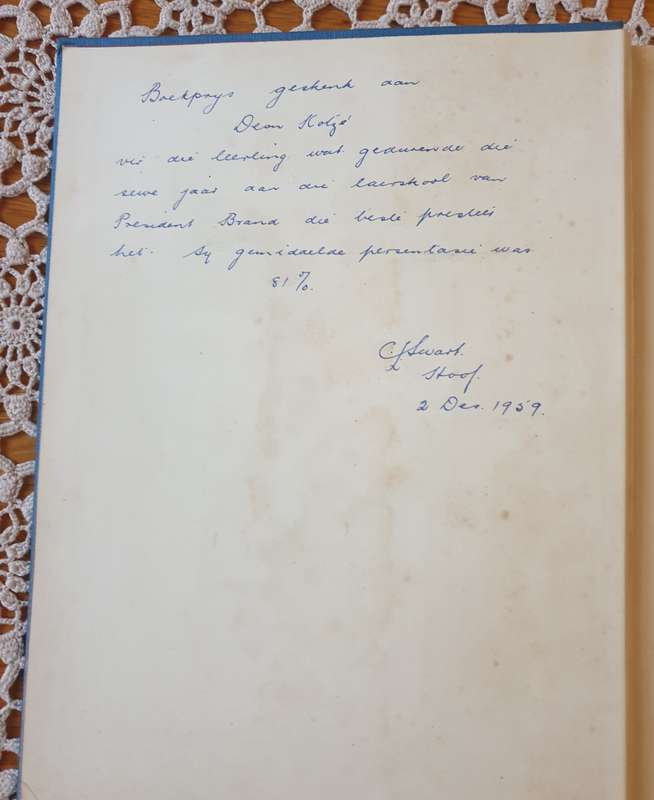 Boekprys geskenk aan
Deon Kotzé
vir die leerling wat gedurende die
sewe jaar aan die laerskool van
President Brand die beste presteer
het. Sy gemiddelde persentasie was
81%.
CJSwart.
Hoof.
2 Des. 1959.